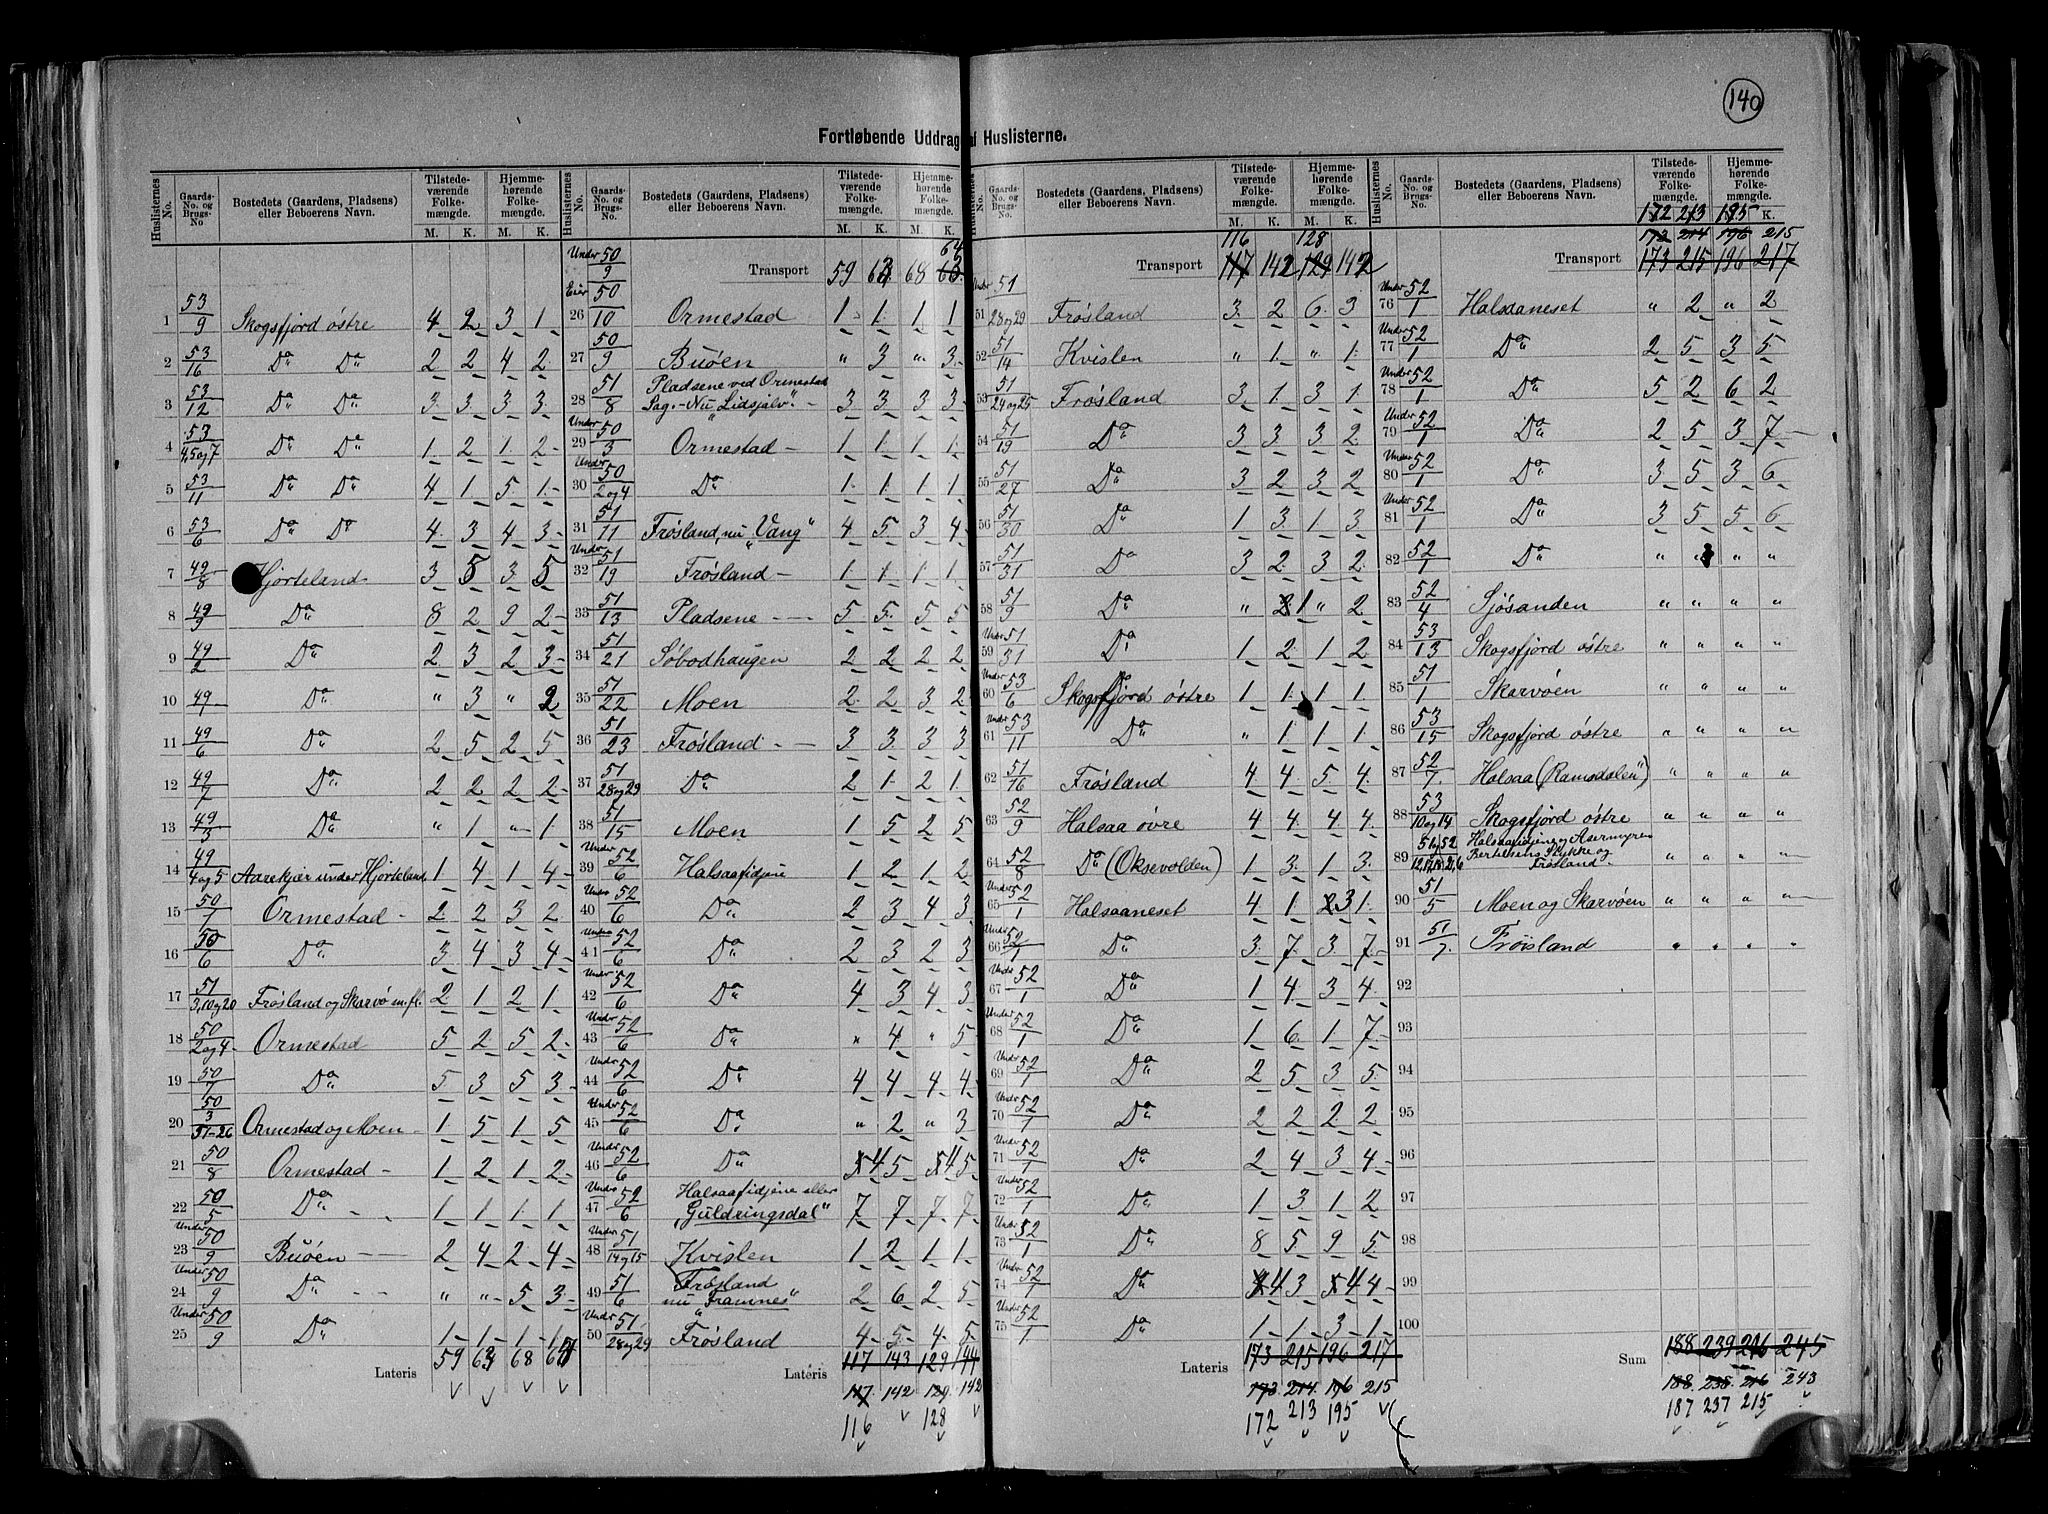 140
Fortløbende Uddrag af Huslisterne.
Huslisternes No. Gaards-No. og Brugs-No Bostedets (Gaardens, Pladsens) eller Beboerens Navn. Tilstedeværende Folkemængde. M. K. Hjemmehørende Folkemængde. M. K.
1 53/9 Skogsfjord østre 4 2 3 1
2 53/16 Do Do 2 2 4 2
3 53/12 Do Do 3 3 3 3
4 53/4,5og7 Do Do 1 2 1 2
5 53/11 Do Do 4 1 5 1
6 53/6 Do Do 4 3 4 3
7 49/8 Hjorteland 3 5 3 5
8 49/9 Do 8 2 9 2
9 49/2 Do 2 3 2 3
10 49/1 Do " 3 " 2
11 49/6 Do 2 5 2 5
12 49/7 Do 2 2 2 2
13 49/3 Do " 1 " 1
14 49/4og5 Aarekjær under Hjorteland 1 4 1 4
15 50/1 Ormestad 2 2 3 2
16 50/6 Do 3 4 3 4
17 51/3,10og20 Frøsland og Skarvø m.fl. 2 1 2 1
18 50/2og4 Ormestad 5 2 5 2
19 50/7 Do 5 3 5 3
20 50/3 51-26 Ormestad og Moen 1 5 1 5
21 50/8 Ormestad 1 2 1 2
22 50/5 Do 1 1 1 1
23 Under 50/9 Buøen 2 4 2 4
24 Under 50/9 Do " " 5 3
25 Under 50/9 Do 1 1 1 1
Lateris 59 63 68 64
Huslisternes No. Gaards-No. og Brugs-No. Bostedets (Gaardens, Pladsens) eller Beboerens Navn. Tilstedeværende Folkemængde. M. K. Hjemmehørende Folkemængde. M. K.
Under 50/9 Transport 59 63 68 64
26 50/10 Ormestad 1 1 1 1
27 50/9 Buøen " 3 " 3
28 51/8 Pladsene ved Ormestad
Sag.- Nu "Lidsjalv". 3 3 3 3
29 Under 50/3 Ormestad 1 1 1 1
30 50/2og4 Do 1 1 1 1
31 51/11 Frøsland, nu "Vang" 4 5 3 4
32 Under 51/19 Frøsland 1 1 1 1
33 51/13 Pladsene 5 5 5 5
34 51/21 Søbodhaugen 2 2 2 2
35 51/22 Moen 2 2 3 2
36 51/23 Frøsland 3 3 3 3
37 51/28og29 Do 2 1 2 1
38 51/15 Moen 1 5 2 5
39 52/6 Halsaafidjene 1 2 1 2
40 Under 52/6 Do 2 3 4 3
41 Under 52/6 Do 2 3 2 3
42 Under 52/6 Do 4 3 4 3
43 Under 52/6 Do " 4 " 5
44 Under 52/6 Do 4 4 4 4
45 Under 52/6 Do " 2 " 3
46 Under 52/6 Do 4 5 4 5
47 Under 52/6 Halsaafidjene eller
"Guldringsdal" 7 7 7 7
48 Under 51/14og15 Kvislen 1 2 1 1
49 51/6 Frøsland
nu "Framnes" 2 6 2 5
50 Under 51/28og29 Frøsland 4 5 4 5
Lateris 117 143 129 144
117 142 129 142
116 128
Huslisternes No. Gaards-No. og Brugs-No. Bostedets (Gaardens, Pladsens) eller Beboerens Navn. Tilstedeværende Folkemængde. M. K. Hjemmehørende Folkemængde. M. K.
116 128
Transport 117 142 129 142
51 Under 51/28og29 Frøsland 3 2 6 3
52 51/14 Kvislen " 1 " 1
53 51/24og25 Frøsland 3 1 3 1
54 51/19 Do 3 3 3 2
55 51/27 Do 3 2 3 2
56 51/30 Do 1 3 1 3
57 51/31 Do 3 2 3 2
58 51/9 Do " 1 " 2
59 Under 51/31 Do 1 2 1 2
60 Under 53/6 Skogsfjord østre 1 1 1 1
61 Under 53/11 Do " 1 1 1
62 51/16 Frøsland 4 4 5 4
63 52/9 Halsaa øvre 4 4 4 4
64 52/8 Do (Oksevolden) 1 3 1 3
65 Under 52/1 Halsaaneset 4 1 3 1
66 52/1 Do 3 7 3 7
67 Under 52/1 Do 1 4 3 4
68 Under 52/1 Do 1 6 1 7
69 Under 52/1 Do 2 5 3 5
70 Under 52/1 Do 2 2 2 2
71 Under 52/1 Do 2 4 3 4
72 Under 52/1 Do 1 3 1 2
73 Under 52/1 Do 8 5 9 5
74 Under 52/1 Do 4 3 4 4
75 Under 52/1 Do 1 1 3 1
Lateris 173 215 196 217
173 214 196 215
172 213 195
Huslisternes No. Gaards-No. og Brugs-No. Bostedets (Gaardens, Pladsens) eller Beboerens Navn. Tilstedeværende Folkemængde. Hjemmehørende Folkemængde. K.
172 213 195
172 214 196 215
Transport 173 215 196 217
76 Under 52/1 Halsaaneset " 2 " 2
77 Under 52/1 Do 2 5 3 5
78 Under 52/1 Do 5 2 6 2
79 Under 52/1 Do 2 5 3 7
80 Under 52/1 Do 3 5 3 6
81 Under 52/1 Do 3 5 5 6
82 52/1 Do " " " "
83 52/4 Sjøsanden " " " "
84 53/13 Skogsfjord østre " " " "
85 51/1 Skarvøen " " " "
86 53/15 Skogsfjord østre " " " "
87 52/7 Halsaa (Ramsdalen") " " " "
88 53/10og14 Skogsfjord østre " " " "
89 51og52 Halsaafidjene, Asermyren
Bertelsens Stykke og
Frøsland " " " "
90 51/5 Moen og Skarvøen " " " "
91 51/7 Frøisland " " " "
92
93
94
95
96
97
98
99
100
Sum 188 239 216 245
188 238 216 243
187 237 215